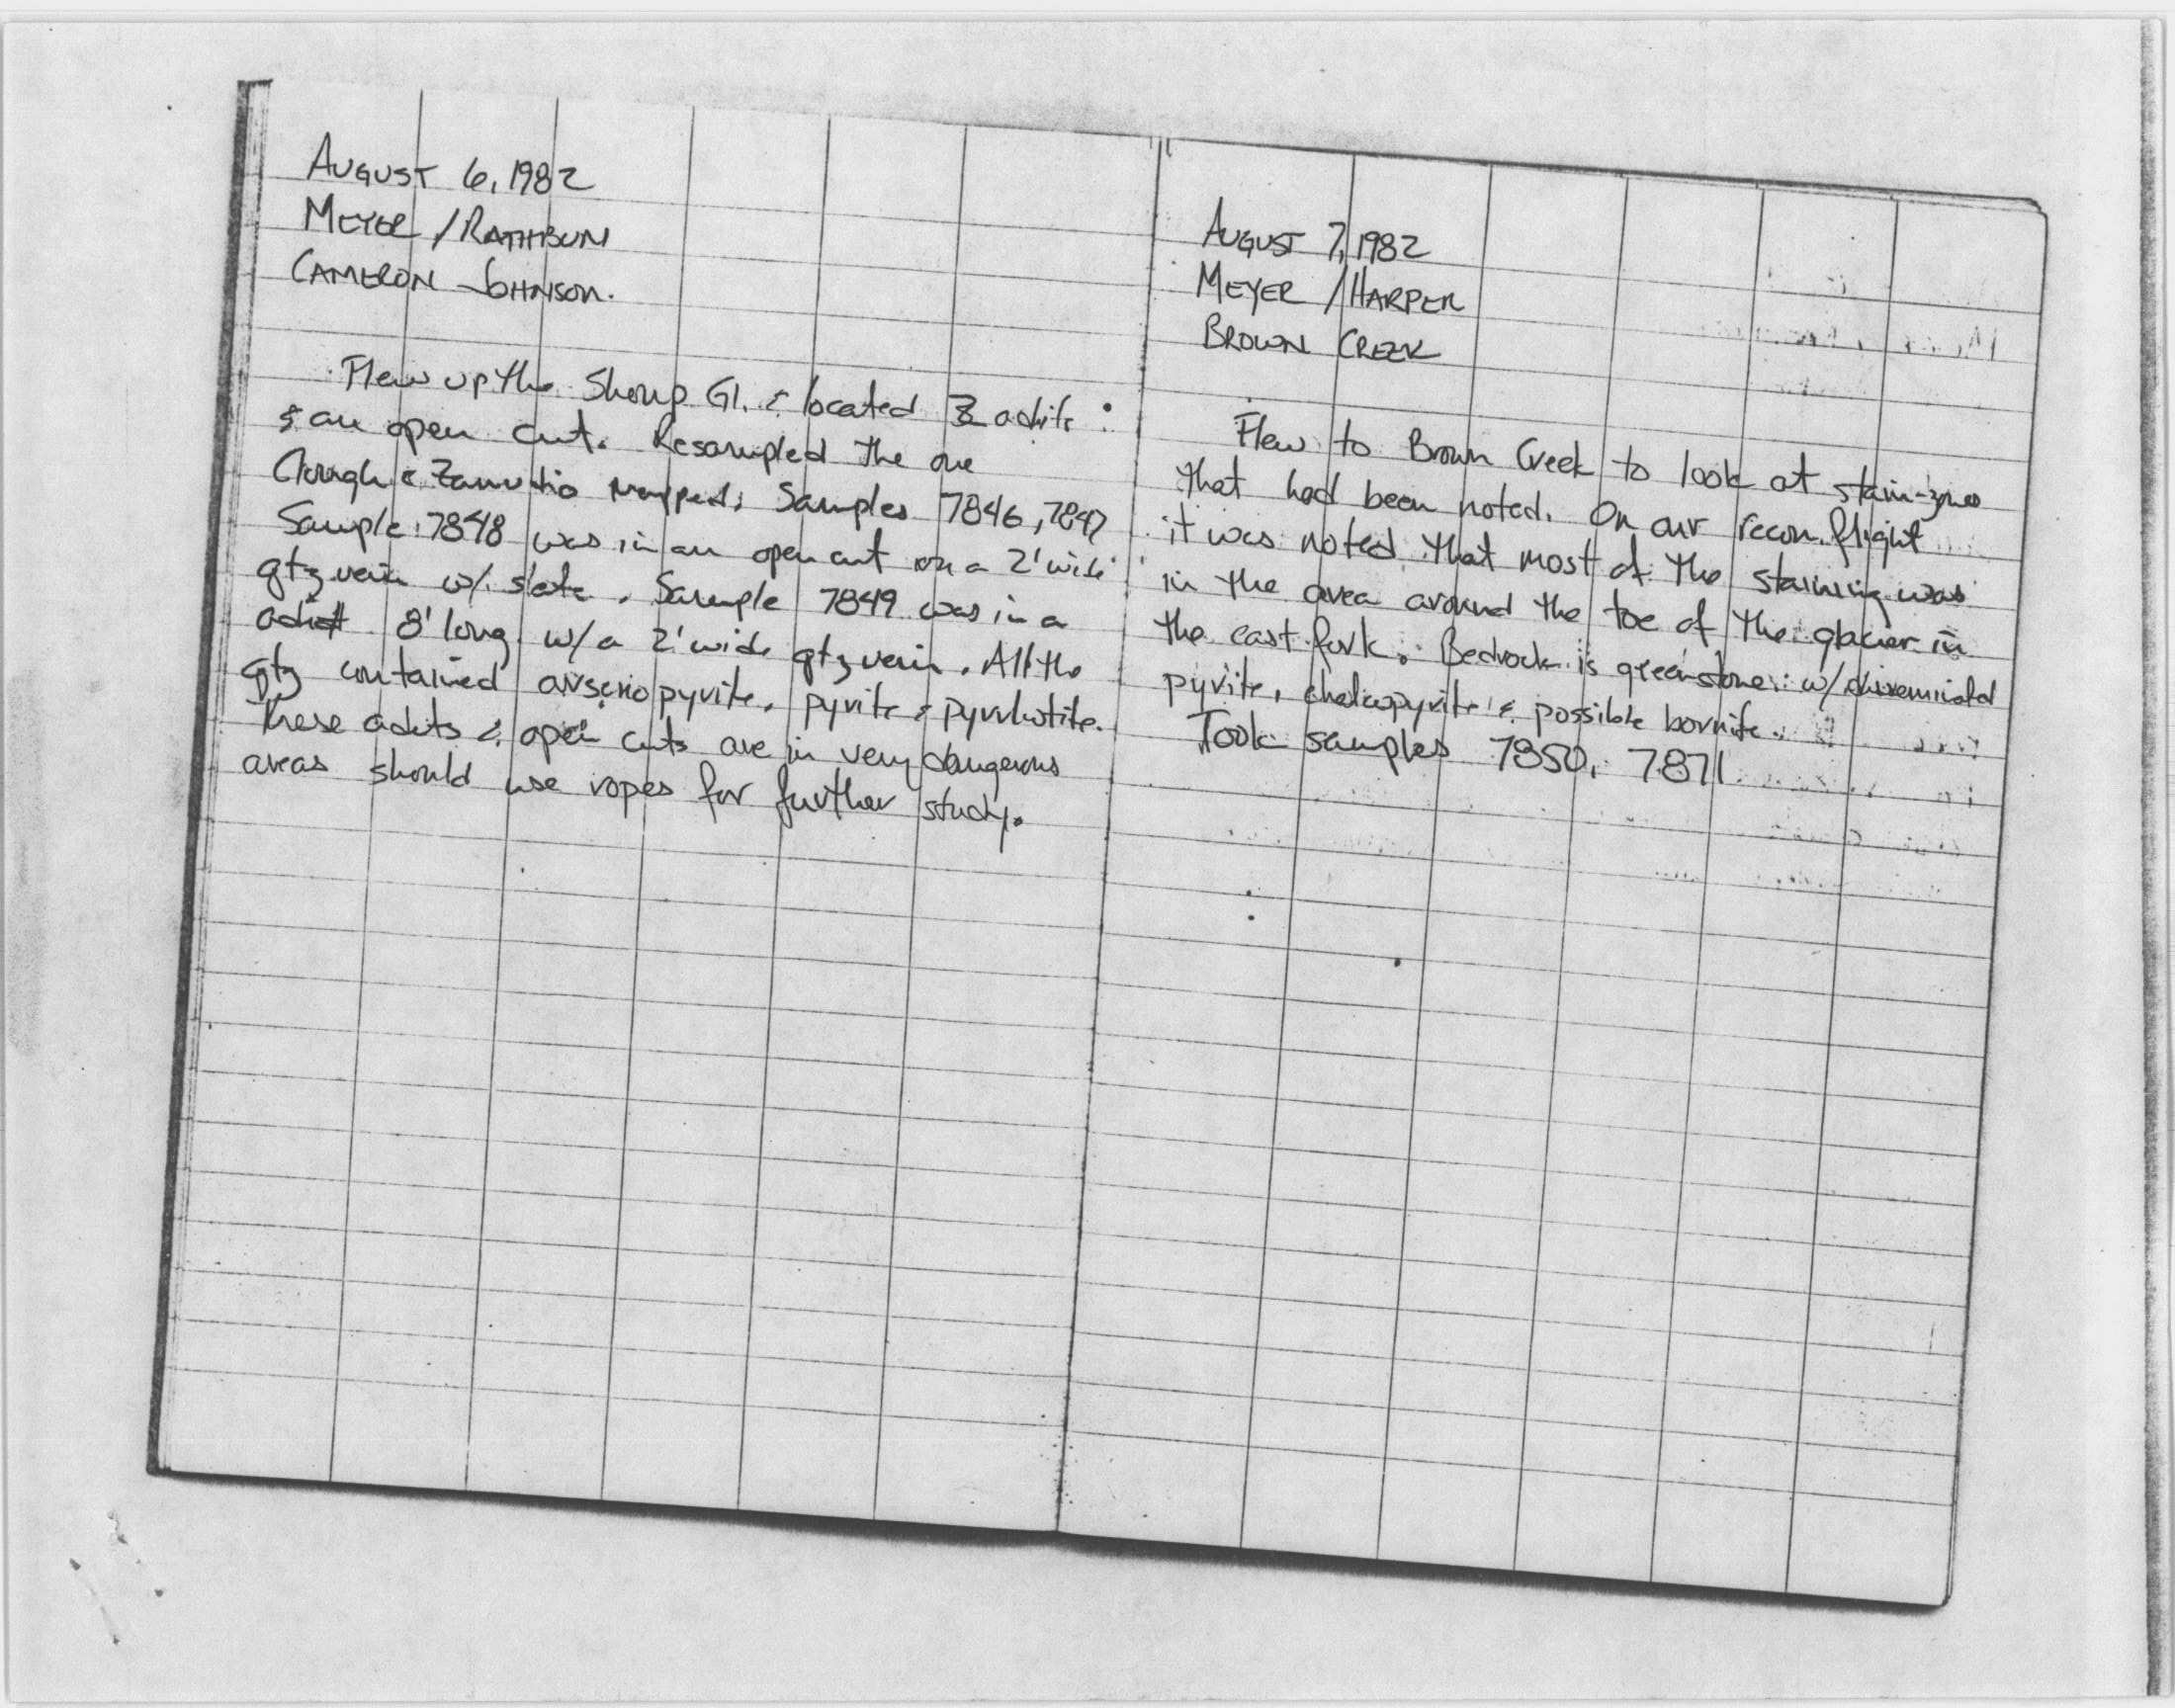 AUGUST 6, 1982
MEYER / RATHBUN
CAMERON JOHNSON.
Flew up the Shoup Gl. & located adits
& an open cut. Resampled the one
Clough & Zamutio mapped. Samples 7846, 7847
Sample 7848 was in an open cut on a 2' wide
qtz vein w/ slate. Sample 7849 was in a
adit 8' long w/ a 2' wide qtz vein. All the
qtz contained arsenopyrite, pyrite & pyrrhotite.
These adits & open cuts are in very dangerous
areas should use ropes for further study.
AUGUST 7, 1982
MEYER / HARPER
BROWN CREEK
Flew to Brown Creek to look at stain-zones
that had been noted. On our recon. flight
it was noted that most of the staining was
in the area around the toe of the glacier in
the east fork. Bedrock is greenstone w/ disseminated
pyrite, chalcopyrite & possible bornite.
Took samples 7850, 7871